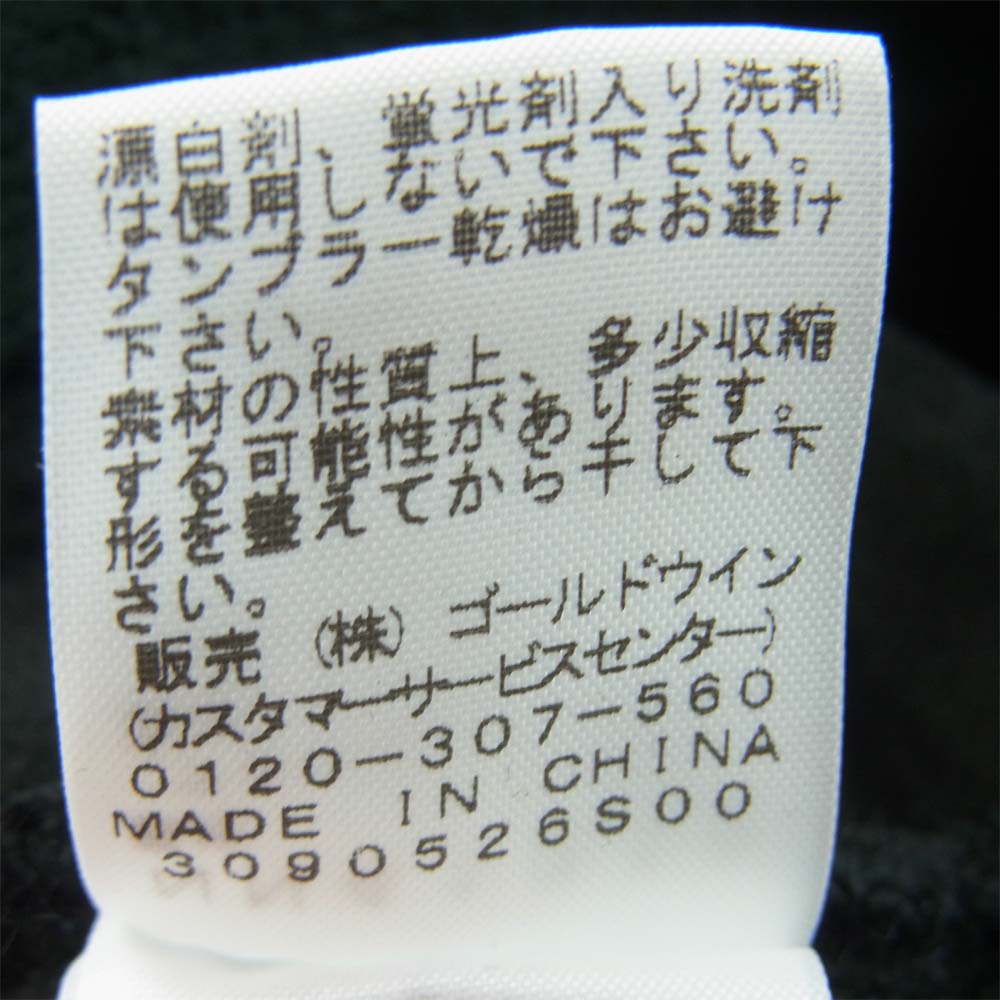 漂白剤、蛍光剤入り洗剤
は使用しないで下さい。
タンブラー乾燥はお避け
下さい。
素材の性質上、多少収縮
する可能性があります。
形をを整えてから干して下
さい。
販売 (株) ゴールドウイン
(カスタマーサービスセンター)
0120-307-560
MADE IN CHINA
3090526S00